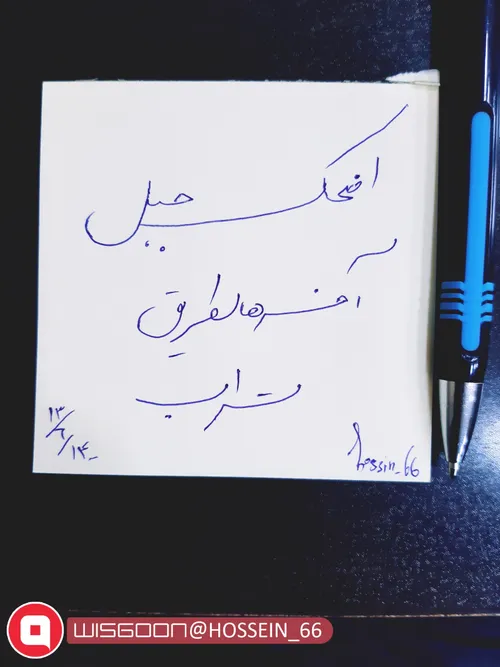 اضحک حیل
آخر هالطریق
تراب
hossin_66
WISGOON@HOSSEIN_66